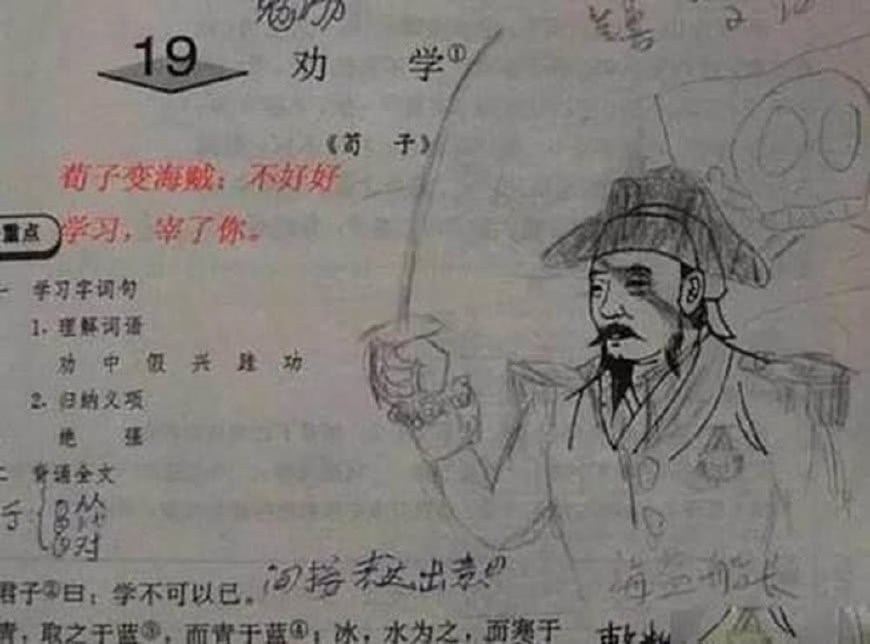 19 劝 学①
《荀 子》
荀子变海贼：不好好
学习，宰了你。
重点
一 学习字词句
1. 理解词语
劝 中 假 兴 跬 功
2. 归纳义项
绝 强
二 背诵全文
对
君子②曰：学不可以已。间接表达出意思
海盗船长
青，取之于蓝③，而青于蓝④；冰，水为之，而寒于